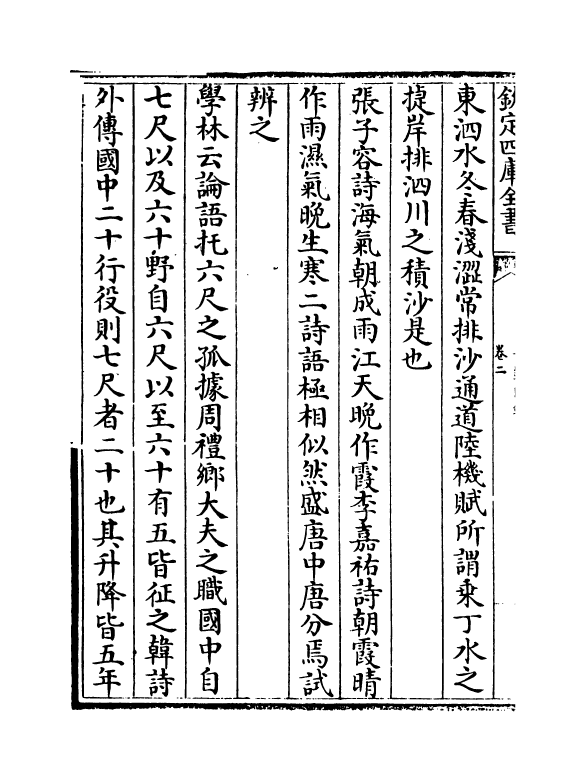 欽定四庫全書
卷二
東泗水冬春淺澀常排沙通道陸機賦所謂乘丁水之
捷岸排泗川之積沙是也
張子容詩海氣朝成雨江天晚作霞李嘉祐詩朝霞晴
作雨濕氣晚生寒二詩語極相似然盛唐中唐分焉試
辨之
學林云論語托六尺之孤據周禮鄉大夫之職國中自
七尺以及六十野自六尺以至六十有五皆征之韓詩
外傳國中二十行役則七尺者二十也其升降皆五年